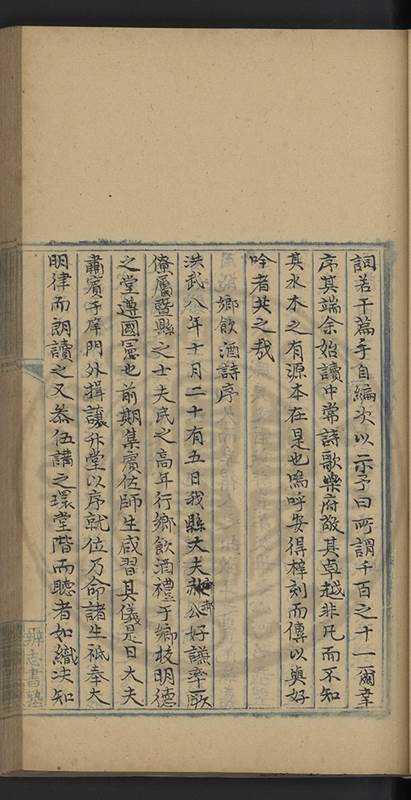 詞若干篇手自編次以示予曰所謂千百之十一爾幸
序其端余始讀中常詩歌樂府敬其卓越非凡而不知
其水木之有源本在是也嗚呼安得梓刻而傳以與好
吟者共之哉
鄉飲酒詩序
洪武八年十月二十有五日我縣大夫公好謙率厥
僚屬暨縣之士夫民之高年行鄉飲酒禮于鄉校明德
之堂遵國憲也前期集賓佐師生咸習其儀是日大夫
肅賓于庠門外揖讓升堂以序就位乃命諸生祗奉大
明律而朗讀之又參伍講之環堂階而聽者如織決知
辨志書塾